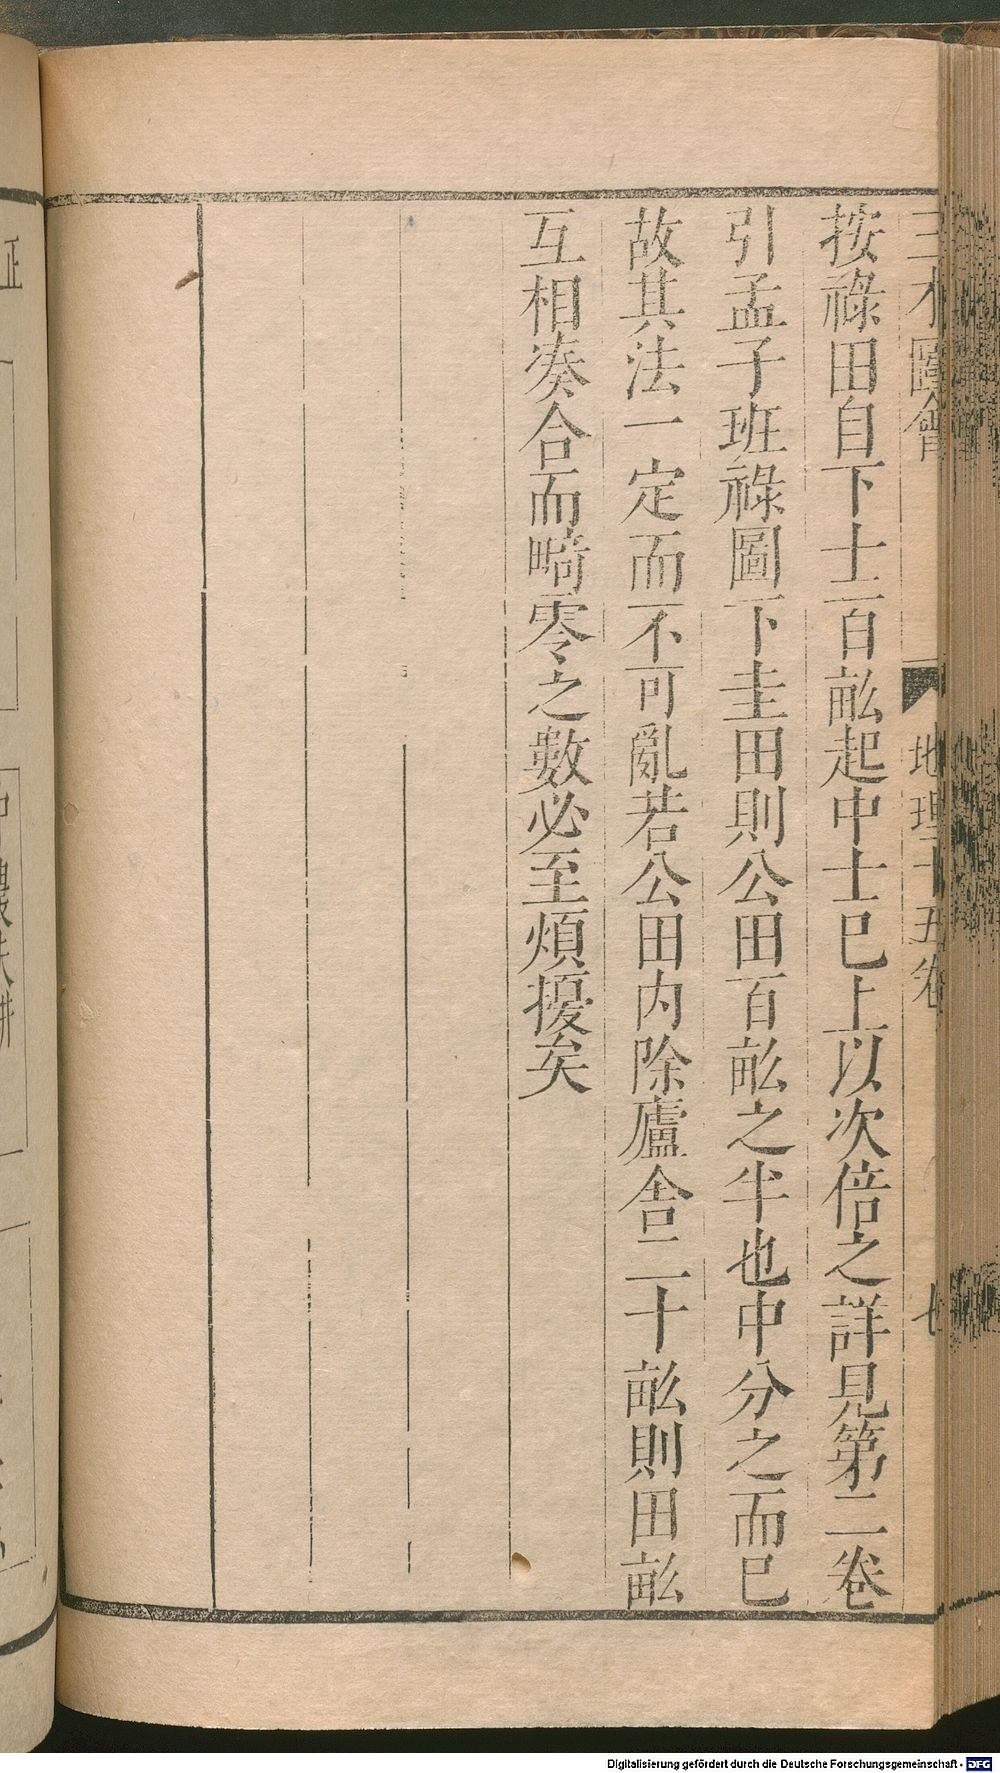 三才圖會 地理十五卷 七
按祿田自下士一百畝起中士巳上以次倍之詳見第二卷
引孟子班祿圖下圭田則公田百畝之半也中分之而巳
故其法一定而不可亂若公田内除廬舎二十畝則田畝
互相凑合而畸零之數必至煩擾矣
Digitalisierung gefördert durch die Deutsche Forschungsgemeinschaft - DFG